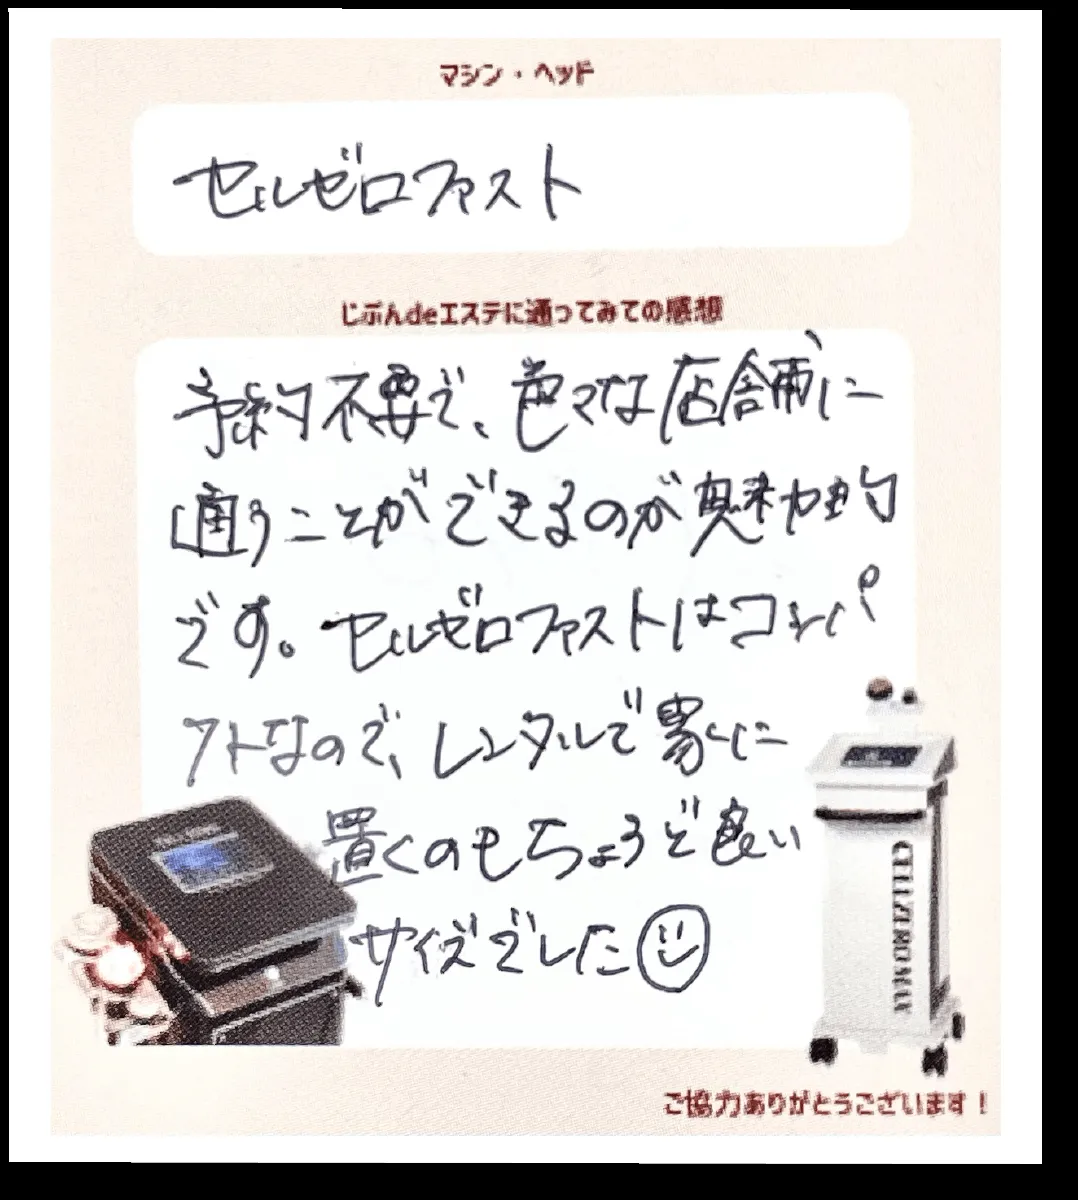 マシン・ヘッド
セルゼロファスト
じぶんdeエステに通ってみての感想
予約不要で、色々な店舗に
通うことができるのが魅力的
です。セルゼロファストはコンパ
クトなので、レンタルで家に
置くのもちょうど良い
サイズでした
CELLZEROMAX
ご協力ありがとうございます！